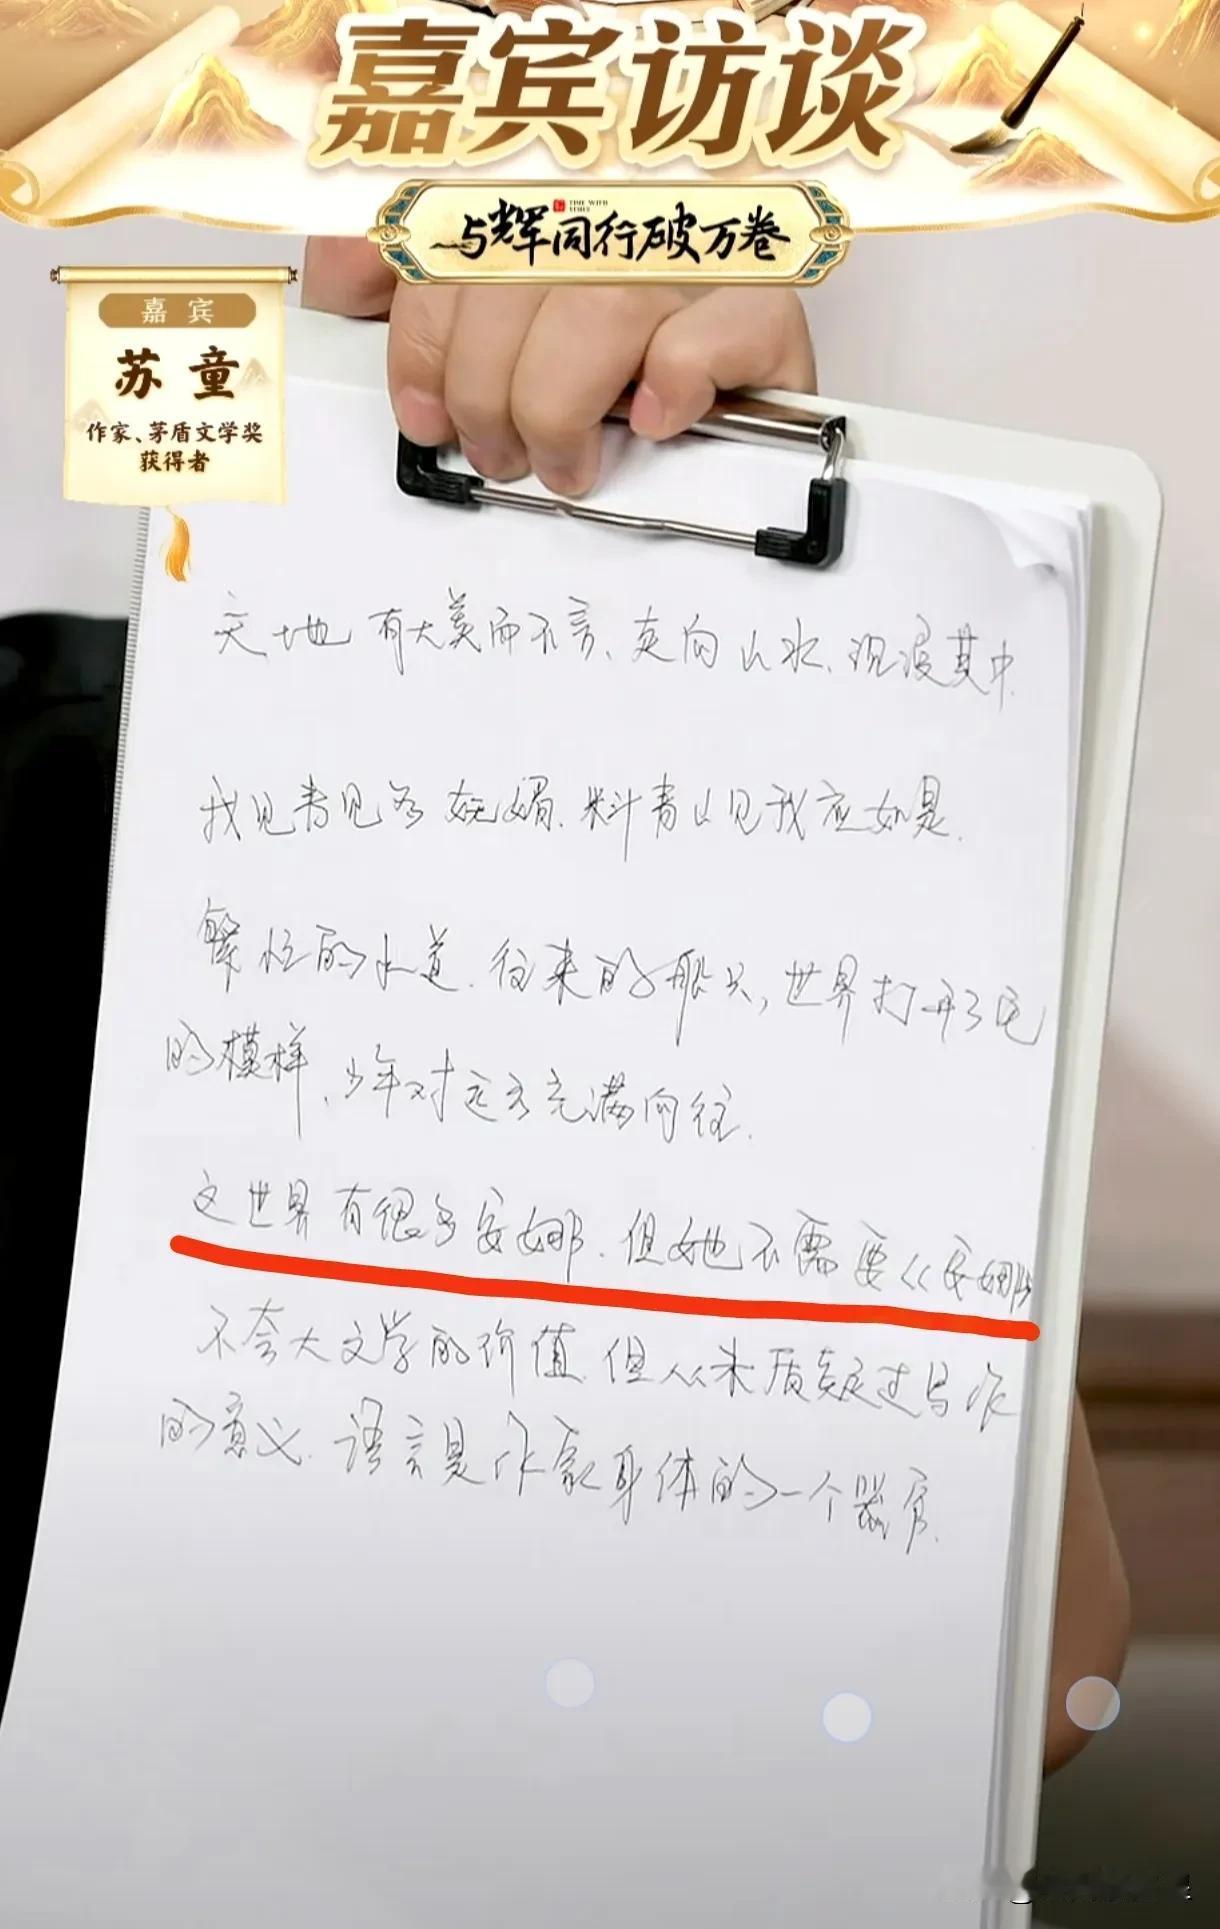 嘉宾访谈
与辉同行破万卷
TIME WITH
嘉宾
苏童
作家、茅盾文学奖
获得者
天地有大美而不言、奔向山水、沉浸其中.
我见青见多妩媚.料青山见我应如是.
繁忙的水道.往来的船只,世界打开了它
的模样、少年对远方充满向往.
这世界有很多安娜.但她不需要《安娜
不夸大文学的价值.但从未质疑过写作
的意义.语言是作家身体的一个器官.